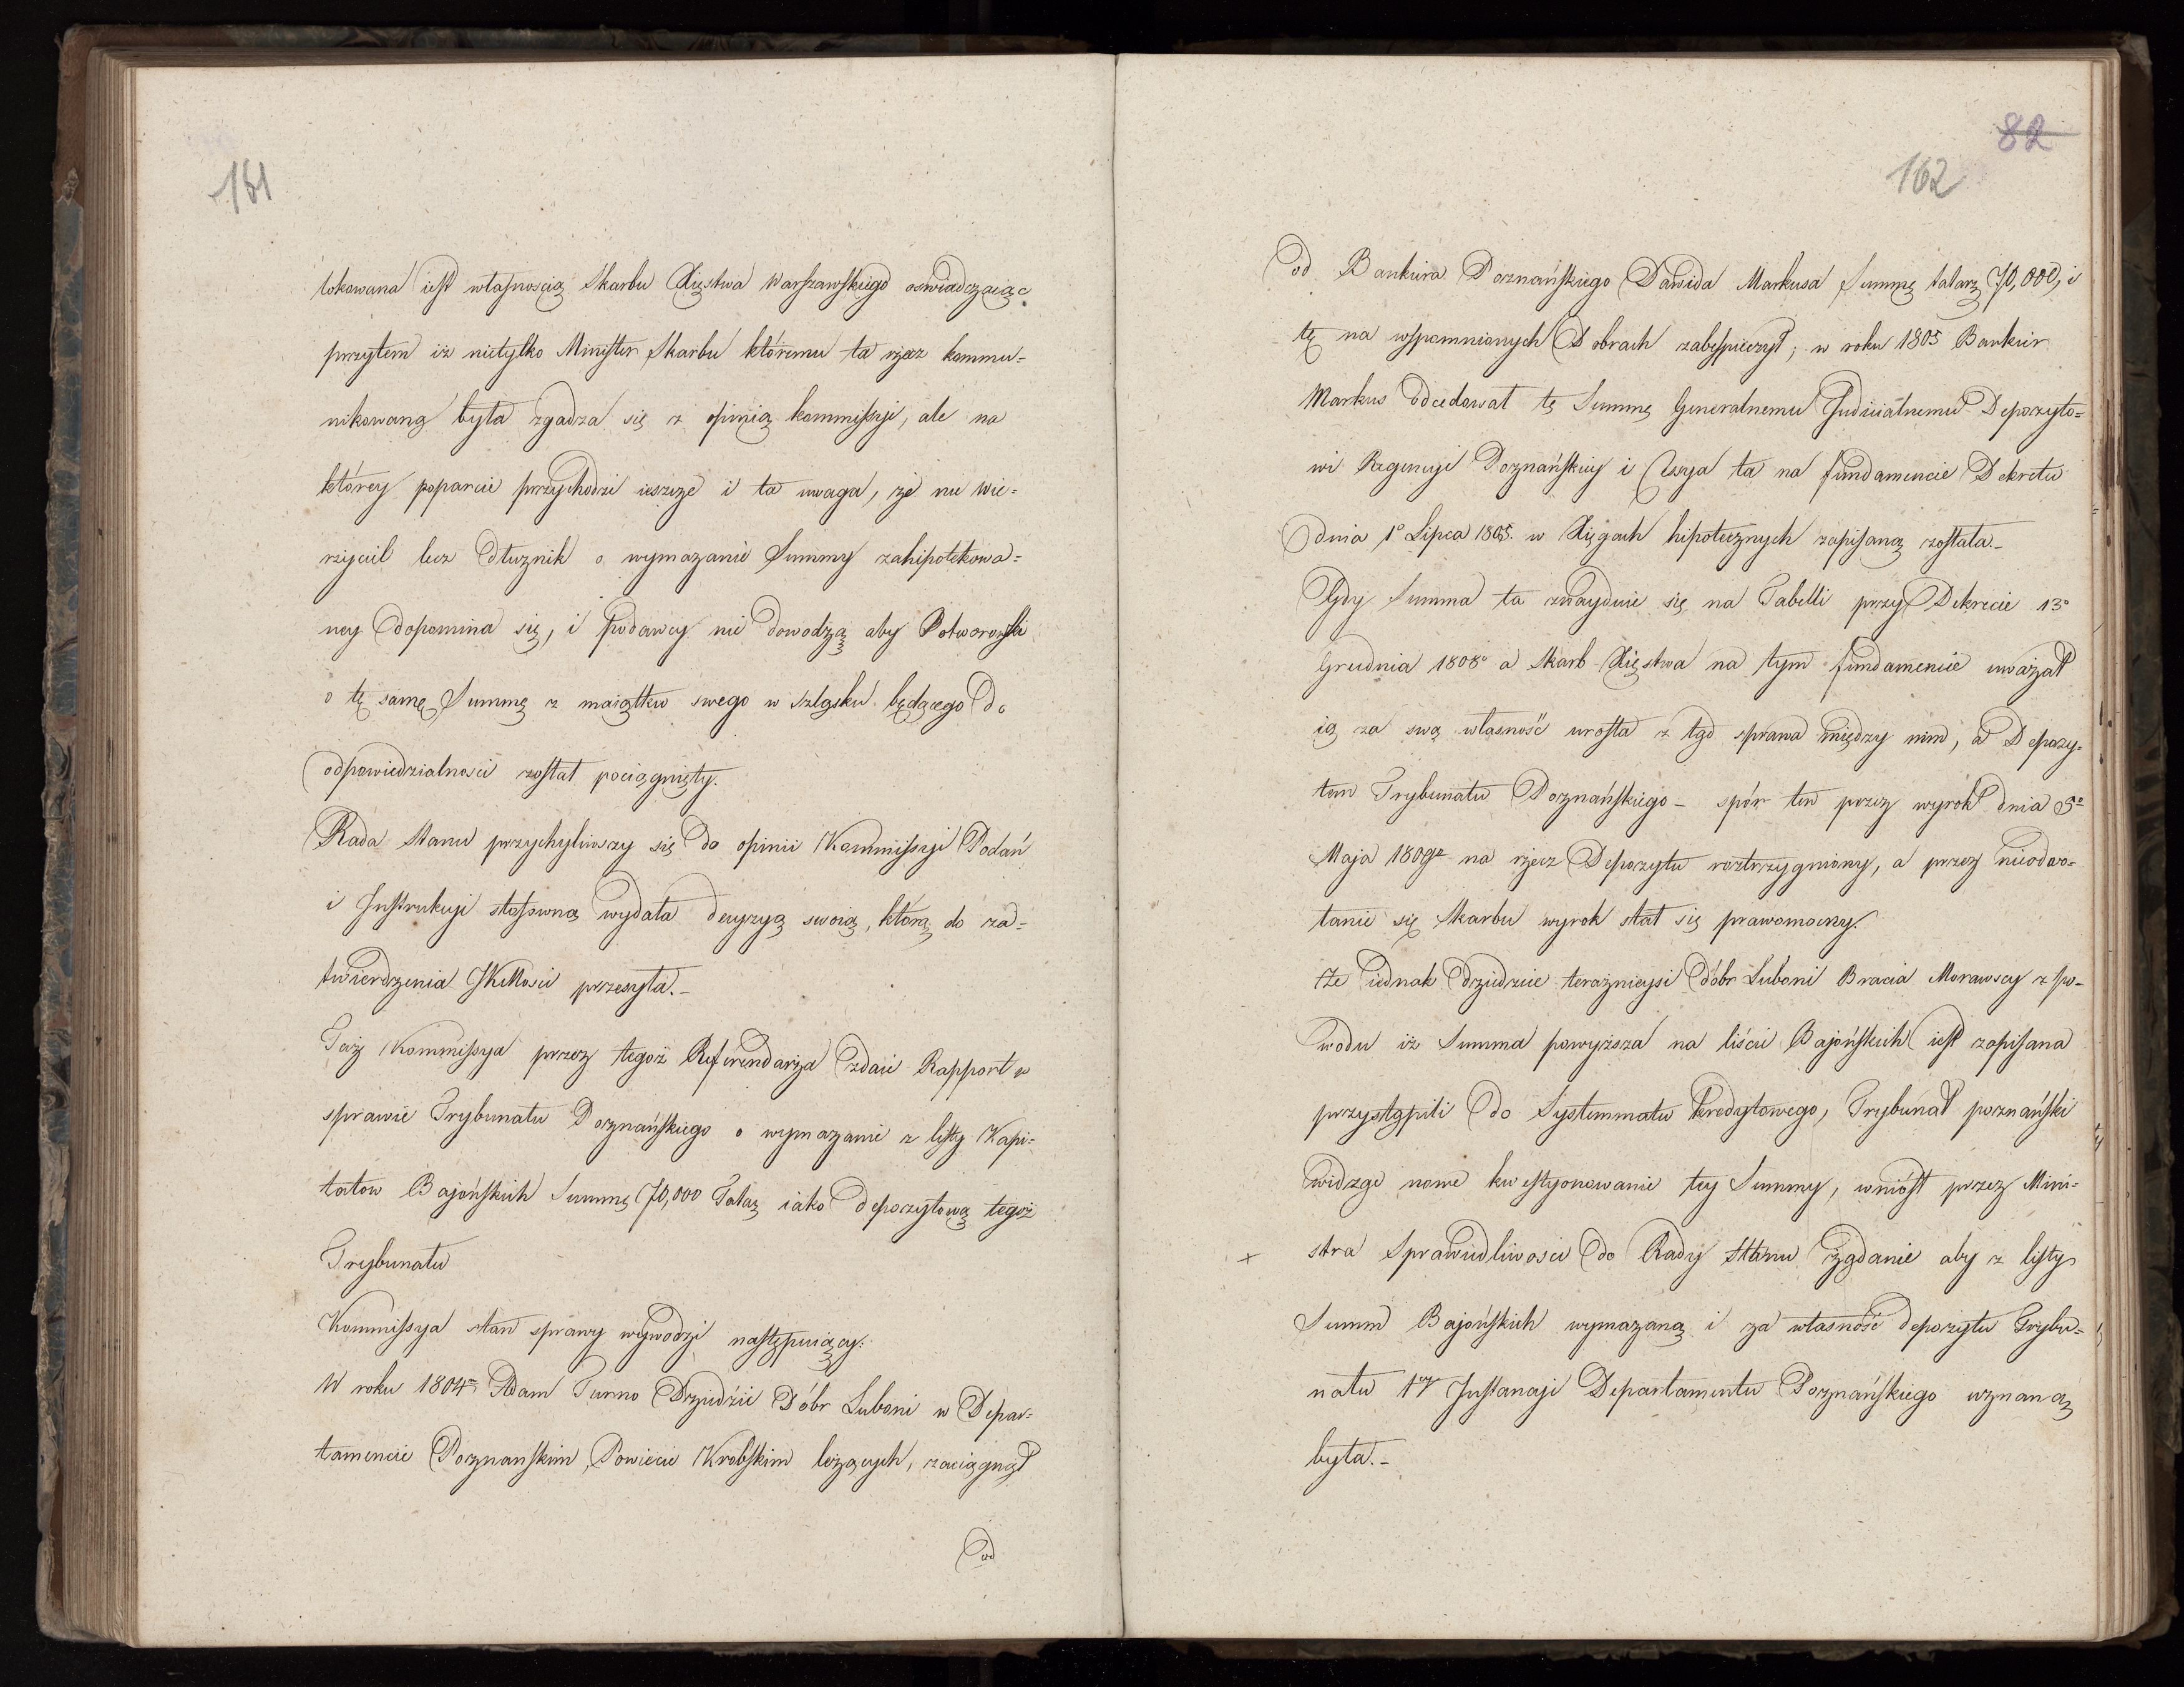 161
lokowana iest własnością Skarbu Xięstwa Warszawskiego oswiadczaiąc
przytem iż nietylko Minister Skarbu któremu ta rzecz kommu-
nikowaną była zgadza się z opinią kommissyi, ale na
którey poparcie przychodzi ieszcze i ta uwaga, że nie wie-
rzyciel lecz Dłużnik o wymazanie Summy zahipotekowa-
ney dopomina się, i podawcy nie dowodzą aby Potworowski
o tę samę Summę z maiątku swego w Szląsku będącego do
odpowiedzialności został pociągnięty.
Rada Stanu przychyliwszy się do opinii Kommissyi Podań
i Instrukcyi stosowną wydała decyzyą swoią, którą do za-
twierdzenia JKMości przesyła.-
Taż Kommissya przez tegoż Referendarza zdaie Rapport w
sprawie Trybunatu Poznańskiego o wymazanie z listy Kapi-
tałow Bajońskich Summę 70,000 Talar iako depozytową tegoż
Trybunatu
Kommissya stan sprawy wywodzi następuiący:
W roku 1804m Adam Turno Dziedzic Dóbr Luboni w Depar-
tamencie Poznanskim, Powiecie Krobskim leżących, zaciągnął
od
82
162
od Bankiera Poznańskiego Dawida Markusa Summę talarą 70,000, i
tę na wspomnionych Dobrach zabespieczył; w roku 1805 Bankier
Markus odcedował tę Summę Generalnemu Judicialnemu Depozyto-
wi Regencyi Poznańskiey i Cessya ta na fundamencie Dekretu
dnia 1o Lipca 1805. w Xięgach hipotecznych zapisaną została.-
Gdy Summa ta znayduie się na Tabelli przy Dekrecie 13o
Grudnia 1808o a Skarb Xięstwa na tym fundamencie uważał
ią za swą własność urosła z tąd sprawa między nim, a Depozy-
tem Trybunatu Poznańskiego - spór ten przez wyrok dnia 5o
Maja 1809o na rzecz Depozytu roztrzygniony, a przez nieodwo-
łanie się Skarbu wyrok stał się prawomocny.
Że iednak Dziedzice teraznieysi dóbr Luboni Bracia Morawscy z po-
wodu iż Summa powyższa na liście Bajońskich iest zapisana
przystąpili do Systemmatu kredytowego, Trybunał poznański
widząc nowe kwestyonowanie tey Summy, wniósł przez Mini-
x stra Sprawiedliwości do Rady Stanu żądanie aby z listy
Summ Bajońskich wymazaną i za własność depozytu Trybu-
natu 1ey Instancyi Departamentu Poznańskiego uznaną
była.-